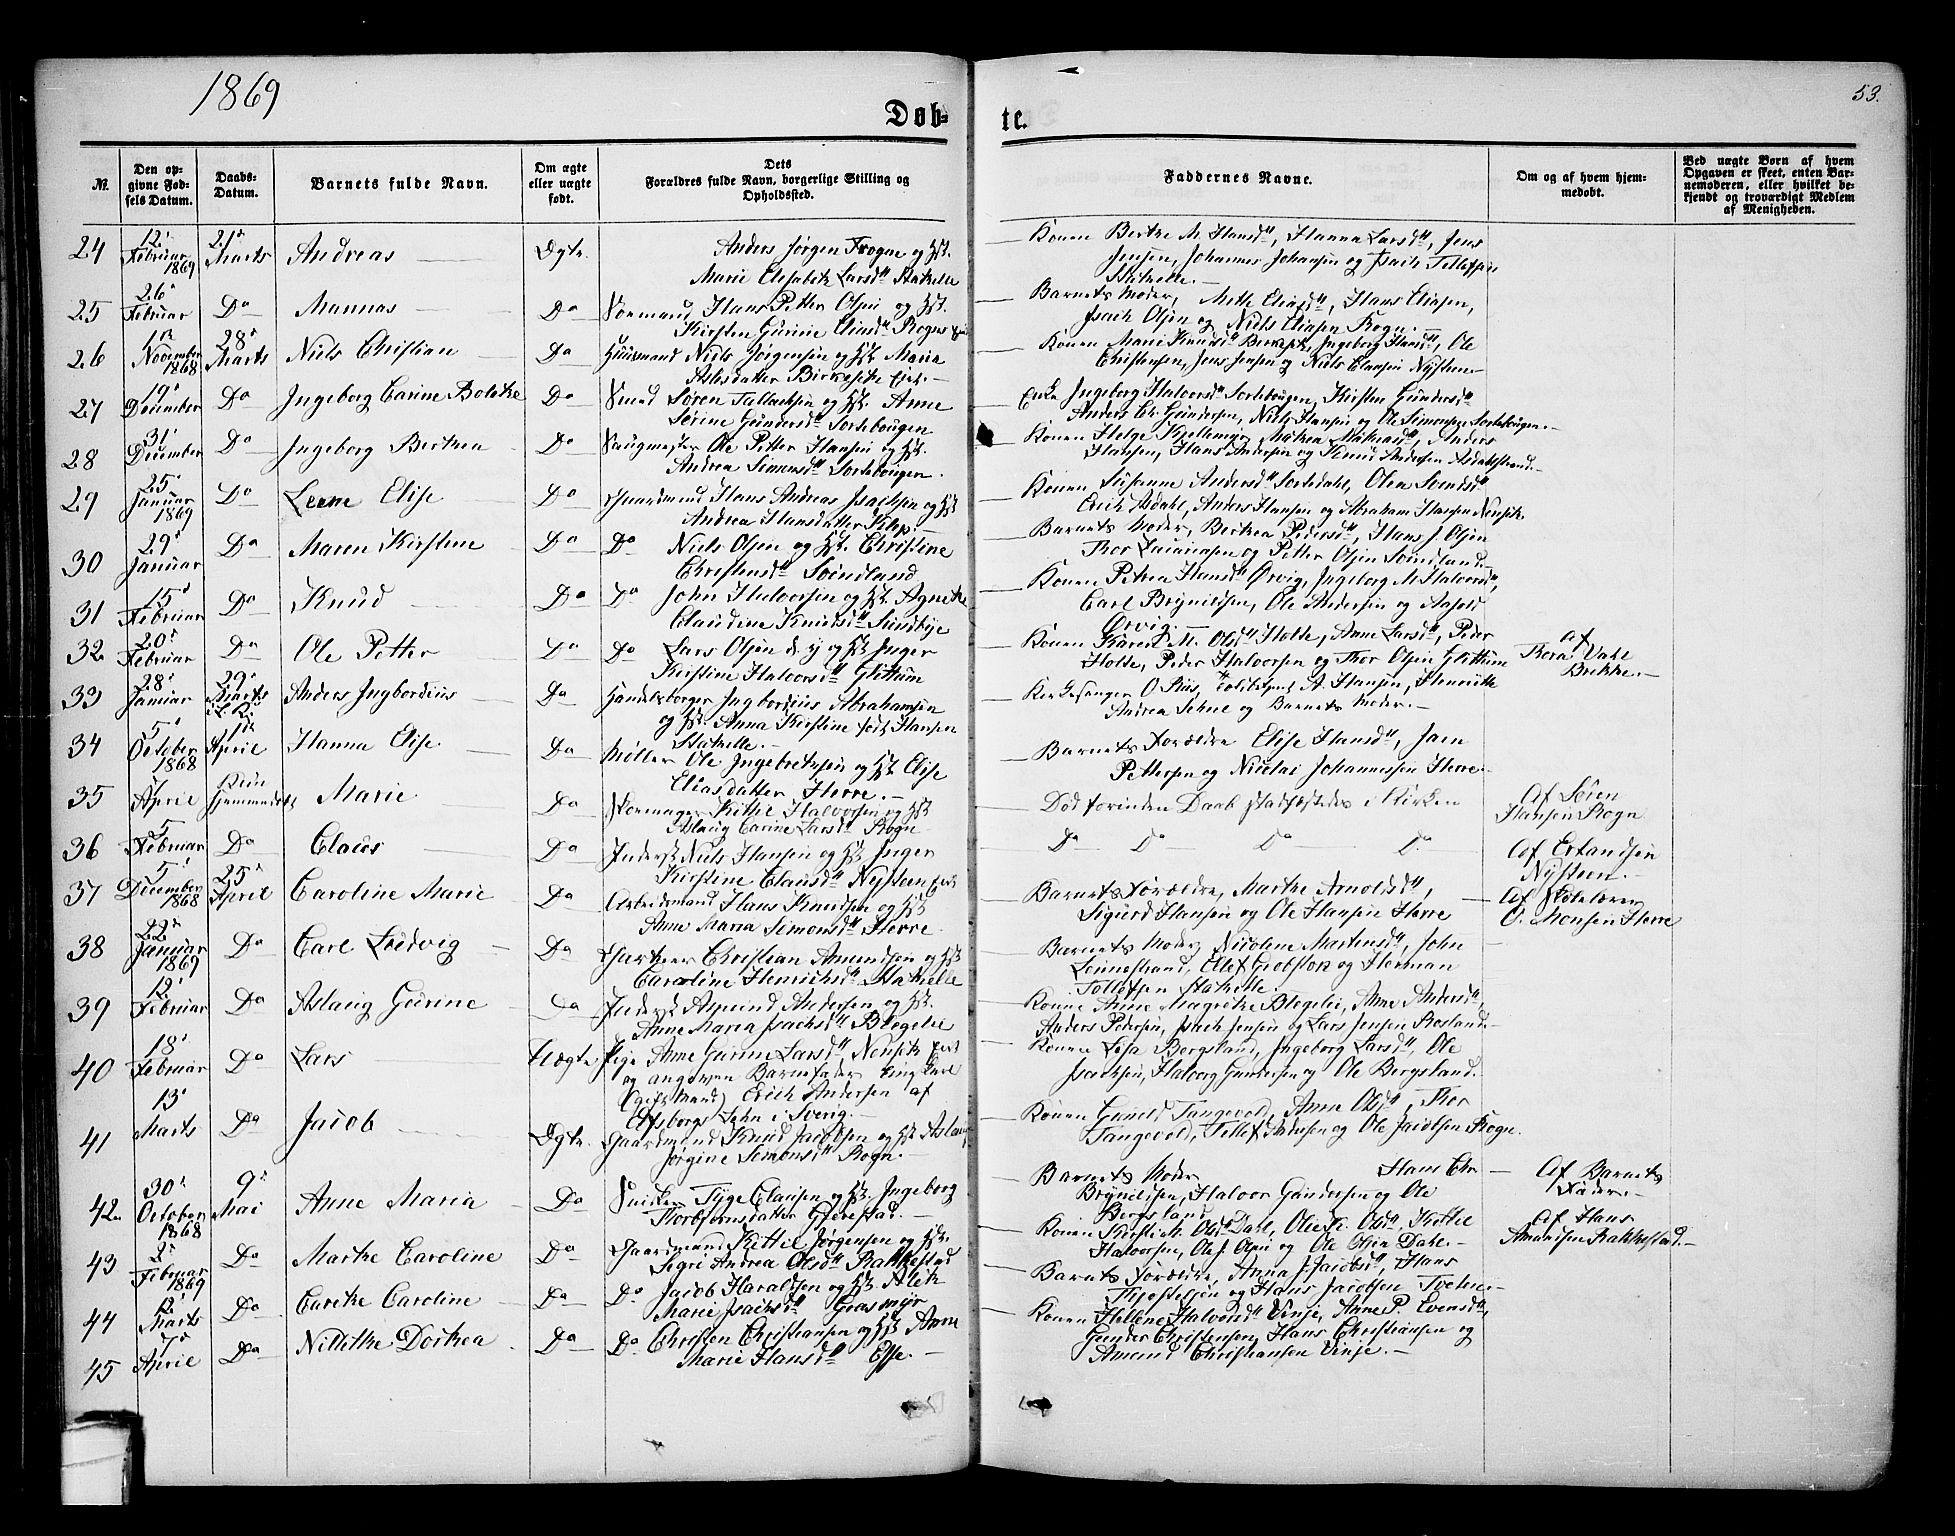 1869
53.
Døb-
te.
№.
Den op-
givne Fød-
sels Datum.
Daabs-
Datum.
Barnets fulde Navn.
Om ægte
eller uægte
født.
Dets
Forældres fulde Navn, borgerlige Stilling og
Opholdssted.
Faddernes Navne.
Om og af hvem hjem-
medøbt.
Ved uægte Børn af hvem
Opgaven er skeet, enten Bar-
nemoderen, eller hvilket be-
kjendt og troværdigt Medlem
af Menigheden.
24 12' Februar 1869 21' Marts Andreas Ægte Anders Jørgen Frogne og Hst.
Marie Elisabeth Larsdtr Stathelle
Konen Berthe M. Hansdtr, Hanna Larsdtr, Jens
Jensen, Johannes Johansen og Isach Tellefsen
Stathelle.
25 26' Februar Do Mannas Do Hans Petter Olsen og Hst.
Kirsten Gurine Eliasdtr Rogns
Barnets Moder, Mette Eliasdtr, Hans Eliasen,
Isach Olsen og Niels Eliasen Rogn.
26 November 1868 28' Marts Niels Christian Do Huusmand Niels Jørgensen og Hst. Maria
Aslesdatter Birkesitte
Konen Marie Knudsdtr, Ingeborg Hansdtr, Ole
Christensen, Jens Jensen og Niels Clausen Nysteen
27 19' December Do Ingeborg Carine Bolethe Do Smed Søren Tallachsen og Hst. Anne
Sørine Gundersdtr Sortebougen
Enke Ingeborg Halvorsdtr Sortebougen, Kirsten Gundersdtr
Anders Chr. Gundersen, Niels Hansen og Ole Simonsen Sortebougen.
28 31' December Do Ingeborg Berthea Do Saugmester Ole Petter Hansen og Hst.
Andrea Simonsdtr Sortebougen.
Konen Helge Kjellemyr, Anders
Hansen, Hans Andersen og Knud Andersen Asdalstrand.
29 25' Januar 1869 Do Leene Elise Do Gaardmand Hans Andreas Isachsen og Hst
Andrea Hansdatter Klep.
Konen Susanne Andersdtr Sortedahl, Olea Svendsdtr
Erich Asdahl, Anders Hansen og Abraham Hansen Nensit.
30 29' Januar Do Maren Kirstine Do Do Niels Olsen og Hst. Christine
Christensdtr Sundland
Barnets Moder, Berthea Pedersdtr, Hans J. Olsen
Thor Zachariasen og Petter Olsen Sundland
31 15' Februar Do Knud Do Do John Halvorsen og Hst. Agnethe
Claudine Knudsdtr Sundbye
Konen Petrea Hansdtr Ørvig, Ingeborg M. Halvorsdtr,
Carl Brynildsen, Ole Andersen og Ørvig.
32 20' Februar Do Ole Petter Do Do Lars Olsen d. y og Hst Inger
Kirstine Halvorsdtr Glittum
Konen Karen M. Olsdtr Holte, Anne Larsdtr, Peder
Holte, Peder Halvorsen og Thor Olsen Glittum
af
Thora Dahl
Brekke.
33 28' Januar 29' Marts Anders Ingbordius Do Handelsborger Ingbordius Abrahamsen
og Hst Anna Kirstine født Hansen
Stathelle.
Kirkesanger O. Riis, A. Hansen, Henriette
Andrea og Barnets Moder.
34 5' October 1868 April Hanna Elise Do Møller Ole Ingebretsen og Hst Elise
Eliasdatter Herre.
Barnets Forældre Elise Hansdtr, Jørn
Pettersen og Nicolai Johannessen Herre
35 7 April Kun hjemmedøbt Marie Do Skomager Kittil Halvorsen og Hst
Aslaug Carine Larsdtr Rogn
Død forinden Daab stadfæstedes i Kirken
Af Søren
Hansen Rogn
36 5' Februar Do Claus Do Inderst Niels Hansen og Hst Inger
Kirstine Clausdtr Nysteen
Do Do Do Do
Af Erlandsen
Nysteen.
37 5' December 1868 25' April Caroline Marie Do Arbeidsmand Hans Knudsen og Hst
Anne Maria Simonsdtr Herre
Barnets Forældre, Marthe Arnoldsdtr,
Sigurd Hansen og Ole Hansen Herre
Af Skolelærer
O. Monsen Herre
38 22' Januar 1869 Do Carl Ludvig Do Garver Christian Amundsen og Hst
Caroline Henrichsdtr Stathelle
Barnets Moder, Nicoline Martensdtr, John
Linnestrand, Olef Grobstok og Herman
Tollefsen Stathelle.
39 12' Februar Do Aslaug Gurine Do Inderst Asmund Andersen og Hst.
Anne Maria Isachsdtr Blegelie
Konen Anne Magrethe Blegelie, Anne Andersdtr,
Anders Pedersen, Isach Jensen og Lars Jensen Rosland.
40 18' Februar Do Lars Uægte Pige Anne Gurine Larsdtr, Nensit
og angiven Barnefader Ungkarl
(gift Mand) Erich Andersen af
Elfsborgs Lehn i Sverig.
Konen Lisa Bergsland, Ingeborg Larsdtr, Ole
Isachsen, Halvorg Gundersen og Ole Bergsland.
41 13' Marts Do Jacob Ægte. Gaardmand Knud Jacobsen og Hst Aslaug
Jørgine Simonsdtr Rogn.
Konen Gunild Tangevold, Anne Olsdtr, Thor
Tangevold, Tellef Andersen og Ole Jacobsen Rogn.
42 30' October 1868 9' Mai Anne Maria Do Snidker Tyge Clausen og Hst. Ingeborg
Thorbjørnsdatter Gjerestad.
Barnets Moder Hans Chr
Brynildsen, Halvor Gundersen og Ole
Bergsland
Af Barnets
Fader.
43 2' Februar 1869 Do Marthe Caroline Do Gaardmand Kittil Jørgensen og Hst.
Sigri Andrea Olsdtr Rakkestad
Konen Kirsti M. Olsdtr Dahl, Olsdtr, Kittil
Halvorsen, Ole J. Olsen og Ole Olsen Dahl.
Af Hans
Amundsen Rakkestad.
44 12' Marts Do Carethe Caroline Do Do Jacob Haraldsen og Hst. Aleth
Marie Isachsdtr Grasmyr
Barnets Forældre, Anna J. Jacobsdtr, Hans
og Hans Jacobsen Tveten
45 7' April Do Nillithe Dorthea Do Do Christen Christiansen og Hst Anne
Marie Hansdtr Esse.
Konen Hellene Halvorsdtr Vinje, Anne P. Evensdtr,
Gunder Christensen, Hans Christiansen og
Amund Christiansen Vinje.